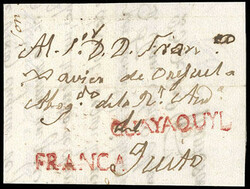 Al S.r D.D. Fran.co
Xavier de Orejuela
Abog.do de la R.l Aud.a
de
GUAYAQUYL
FRANCA Quito